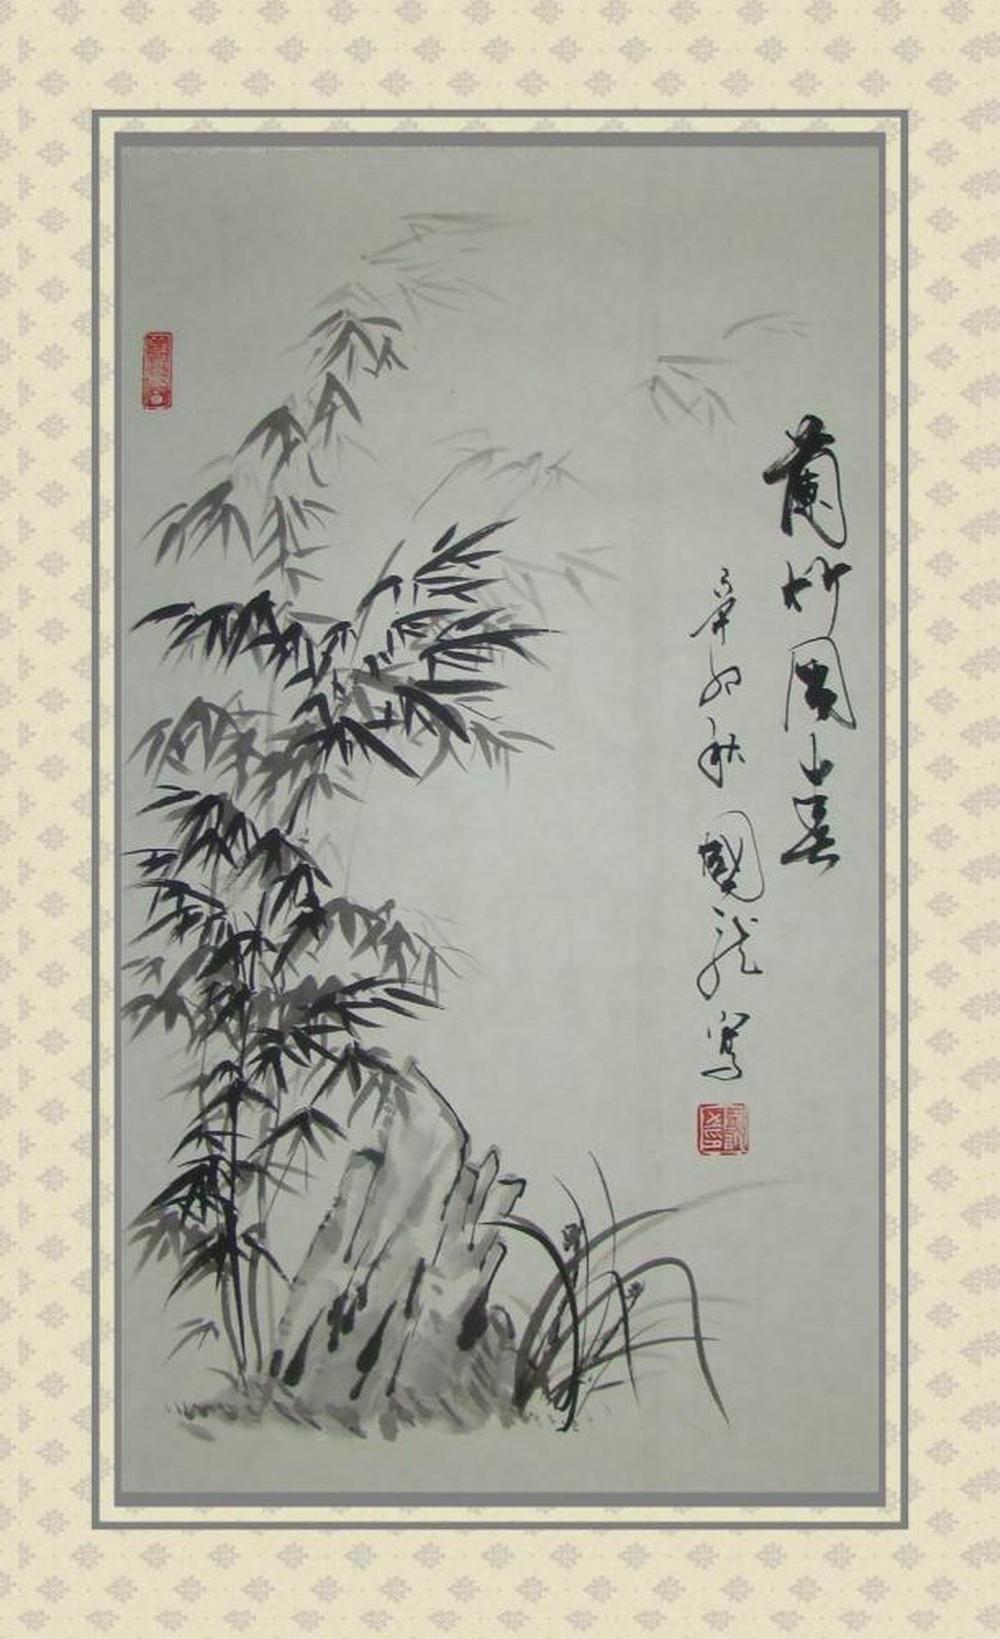 蘭竹同山春
辛卯秋國龍寫